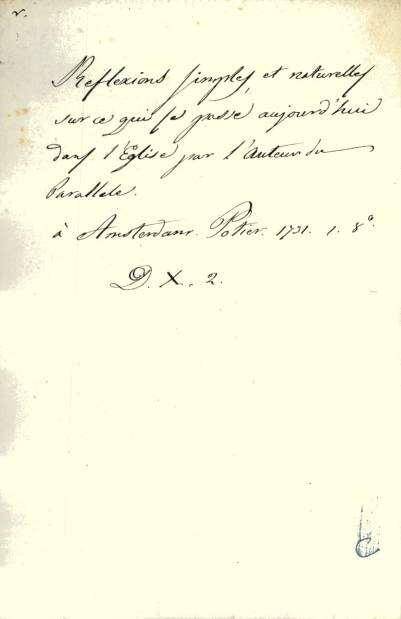 r.
Reflexions simples, et naturelles
sur ce qui se passe aujourd'hui
dans l'Eglise par l'Auteur du
Parallele.
à Amsterdam. Potier. 1731. 1. 8°.
D. X. 2.
C